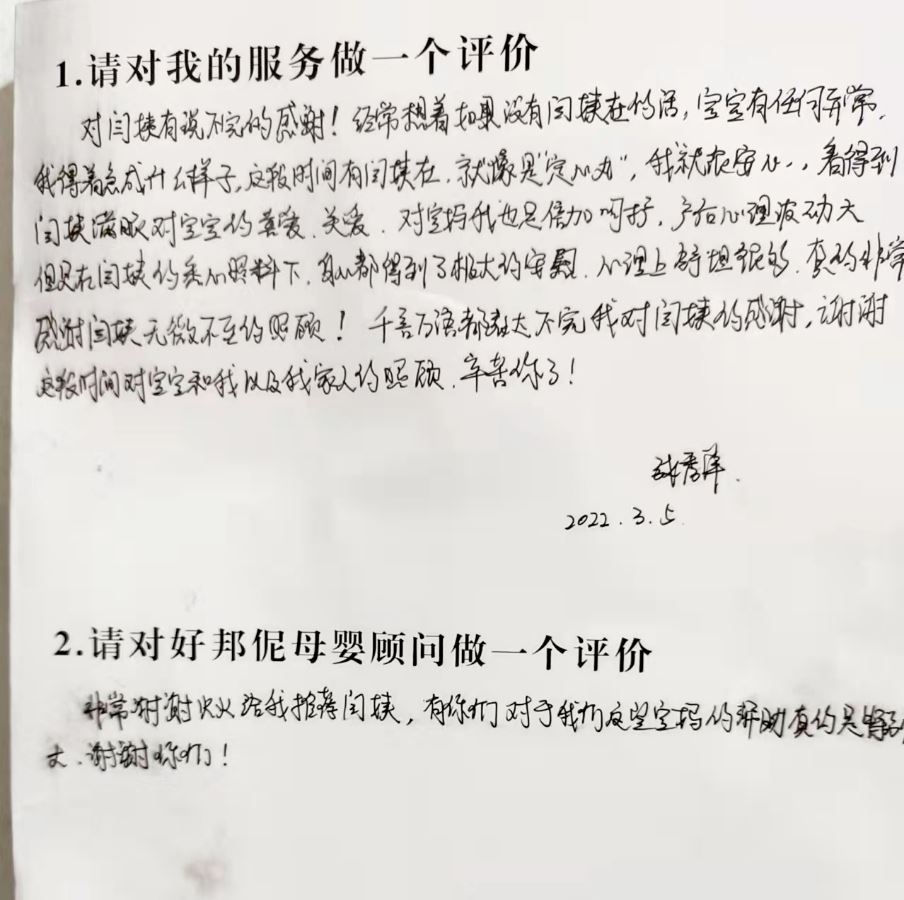 1.请对我的服务做一个评价
对闫姨有说不完的感谢！经常想着如果没有闫姨在的话，宝宝有任何异常，
我得着急成什么样子，这段时间有闫姨在，就像是“定心丸”，我就很安心，看得到
闫姨满眼对宝宝的喜爱、关爱，对宝妈我也是倍加呵护，产后心理波动大
但是在闫姨的悉心照料下，身心都得到了极大的安慰，心理上舒坦很多，真的非常
感谢闫姨无微不至的照顾！千言万语都表达不完我对闫姨的感谢，谢谢
这段时间对宝宝和我以及我家人的照顾，辛苦你了！
2022.3.5
2.请对好邦伲母婴顾问做一个评价
非常谢谢火火给我推荐闫姨，有你们对于我们这些宝妈的帮助真的是
大，谢谢你们！